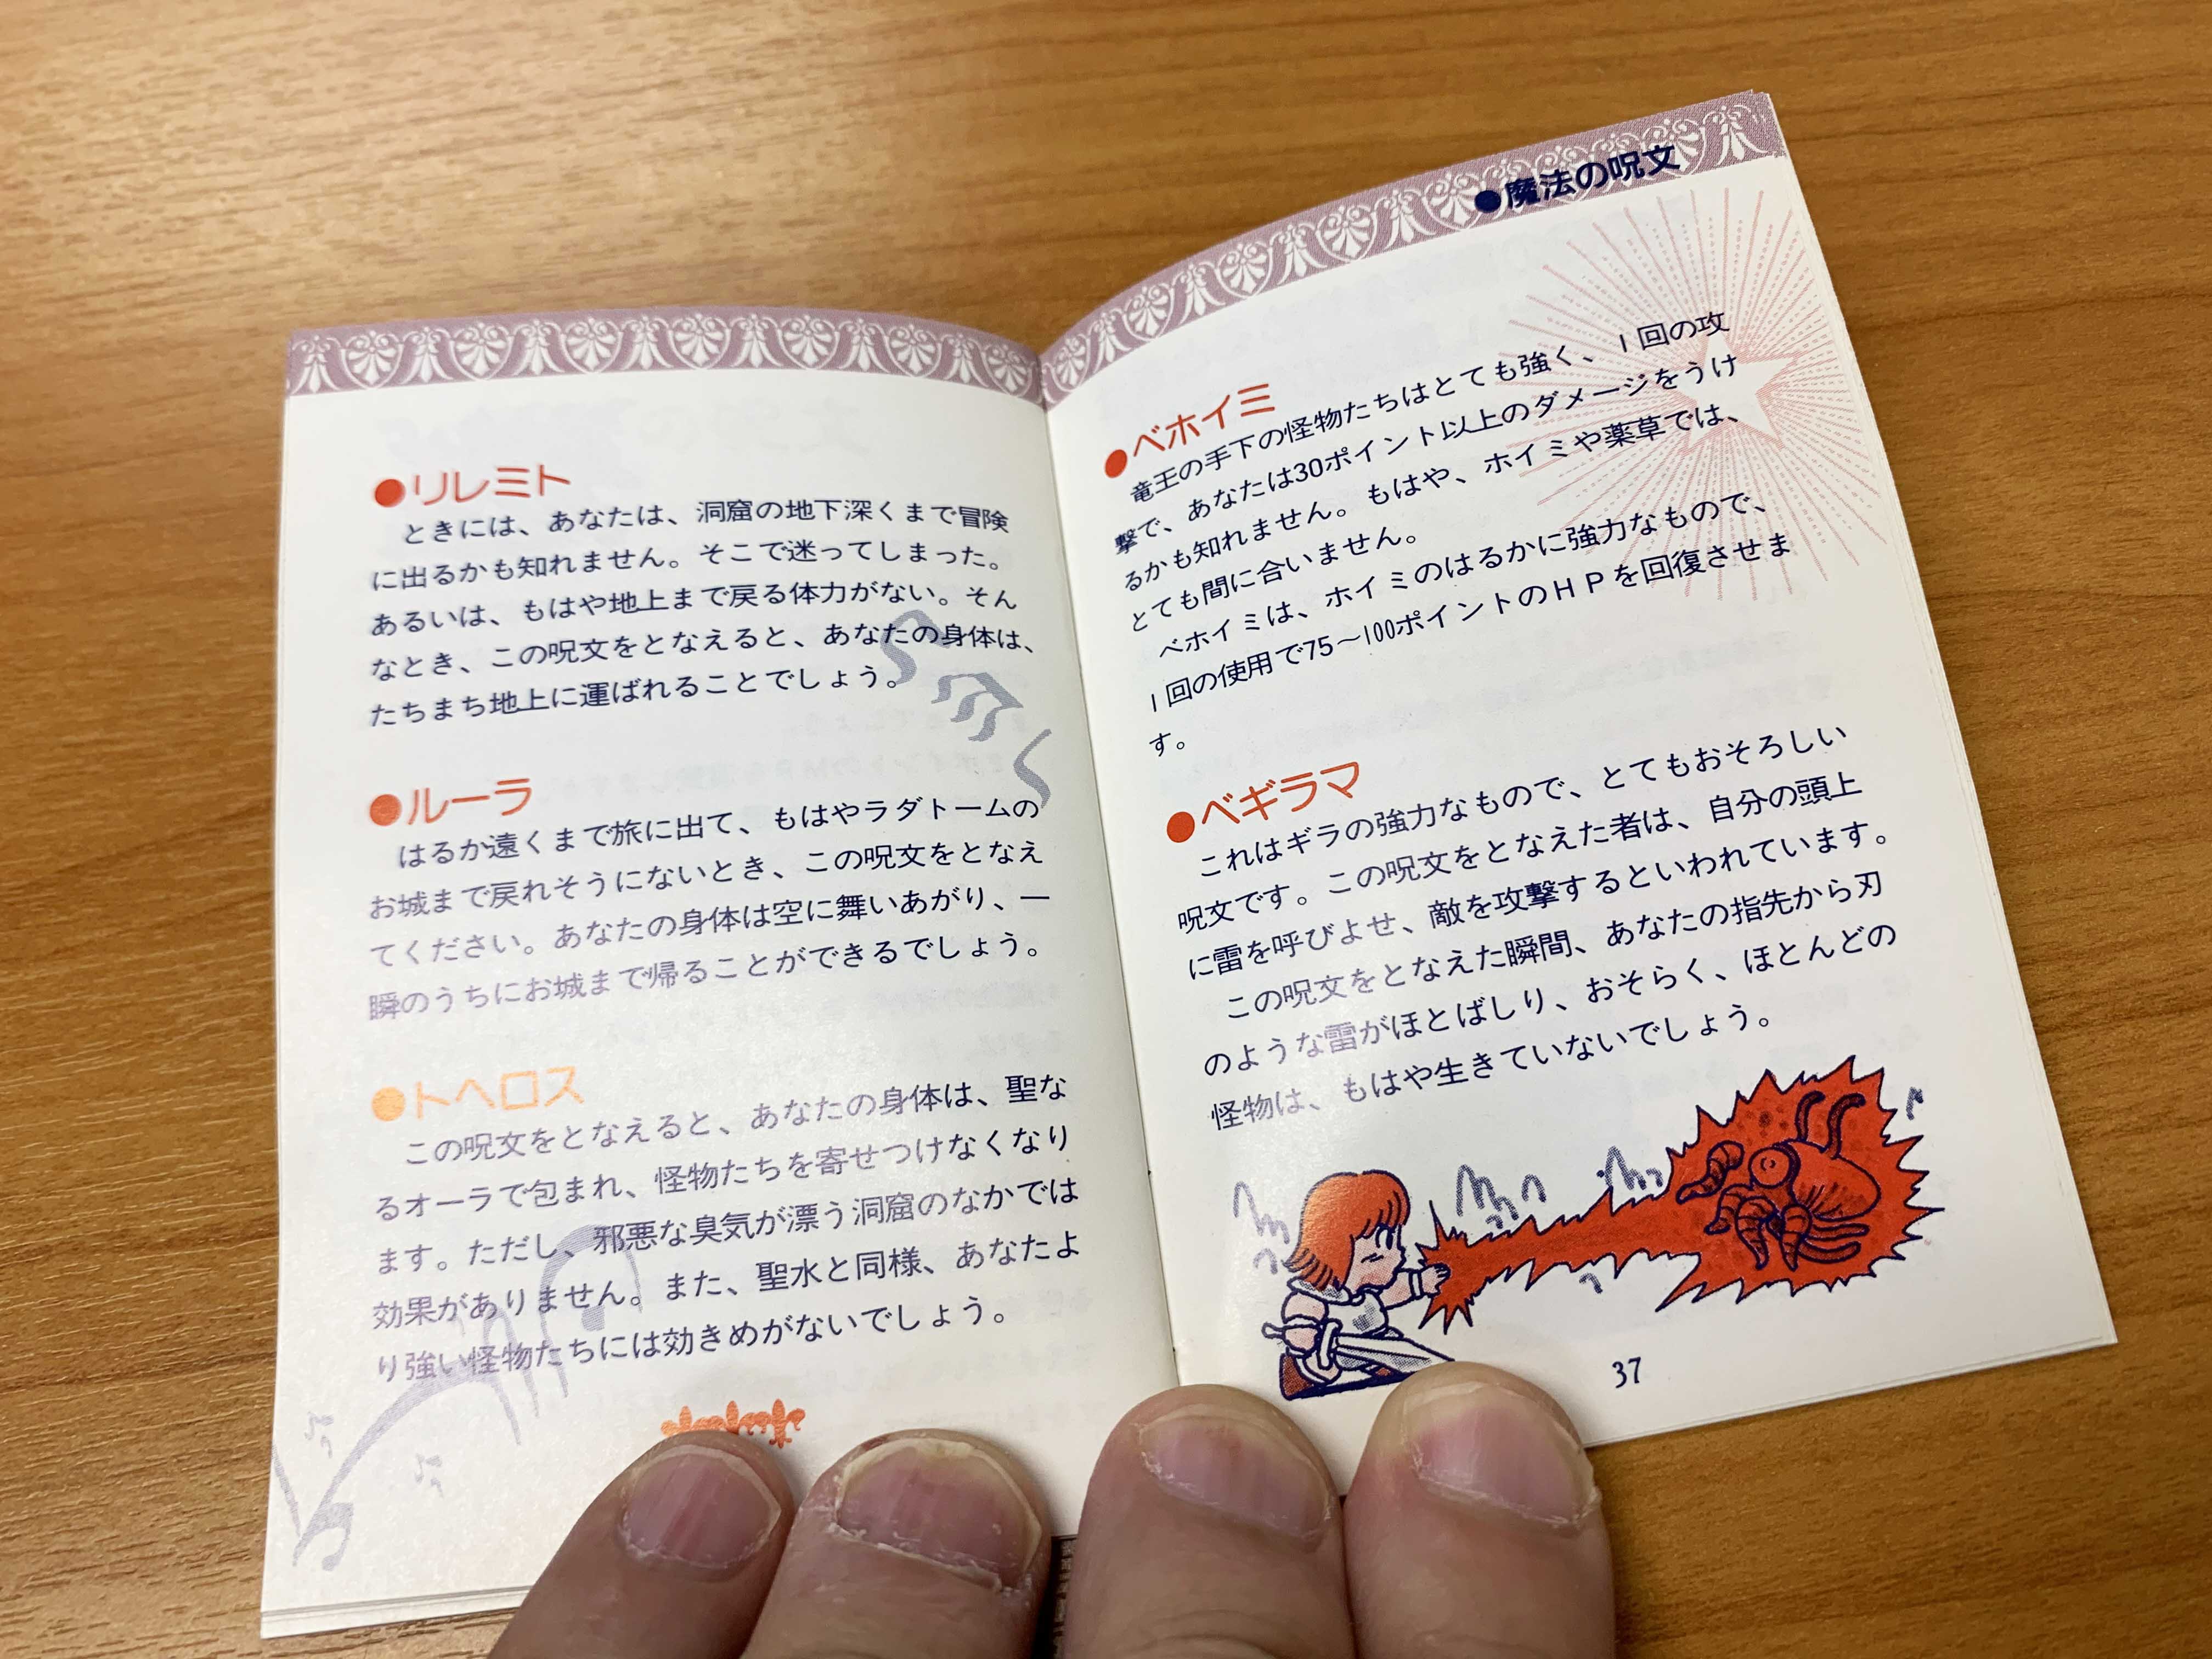 ●リレミト
ときには、あなたは、洞窟の地下深くまで冒険
に出るかも知れません。そこで迷ってしまった。
あるいは、もはや地上まで戻る体力がない。そん
なとき、この呪文をとなえると、あなたの身体は、
たちまち地上に運ばれることでしょう。
●ルーラ
はるか遠くまで旅に出て、もはやラダトームの
お城まで戻れそうにないとき、この呪文をとなえ
てください。あなたの身体は空に舞いあがり、一
瞬のうちにお城まで帰ることができるでしょう。
●トヘロス
この呪文をとなえると、あなたの身体は、聖な
るオーラで包まれ、怪物たちを寄せつけなくなり
ます。ただし、邪悪な臭気が漂う洞窟のなかでは
効果がありません。また、聖水と同様、あなたよ
り強い怪物たちには効きめがないでしょう。
●魔法の呪文
●ベホイミ
竜王の手下の怪物たちはとても強く、1回の攻
撃で、あなたは30ポイント以上のダメージをうけ
るかも知れません。もはや、ホイミや薬草では、
とても間に合いません。
ベホイミは、ホイミのはるかに強力なもので、
1回の使用で75〜100ポイントのHPを回復させま
す。
●ベギラマ
これはギラの強力なもので、とてもおそろしい
呪文です。この呪文をとなえた者は、自分の頭上
に雷を呼びよせ、敵を攻撃するといわれています。
この呪文をとなえた瞬間、あなたの指先から刃
のような雷がほとばしり、おそらく、ほとんどの
怪物は、もはや生きていないでしょう。
37